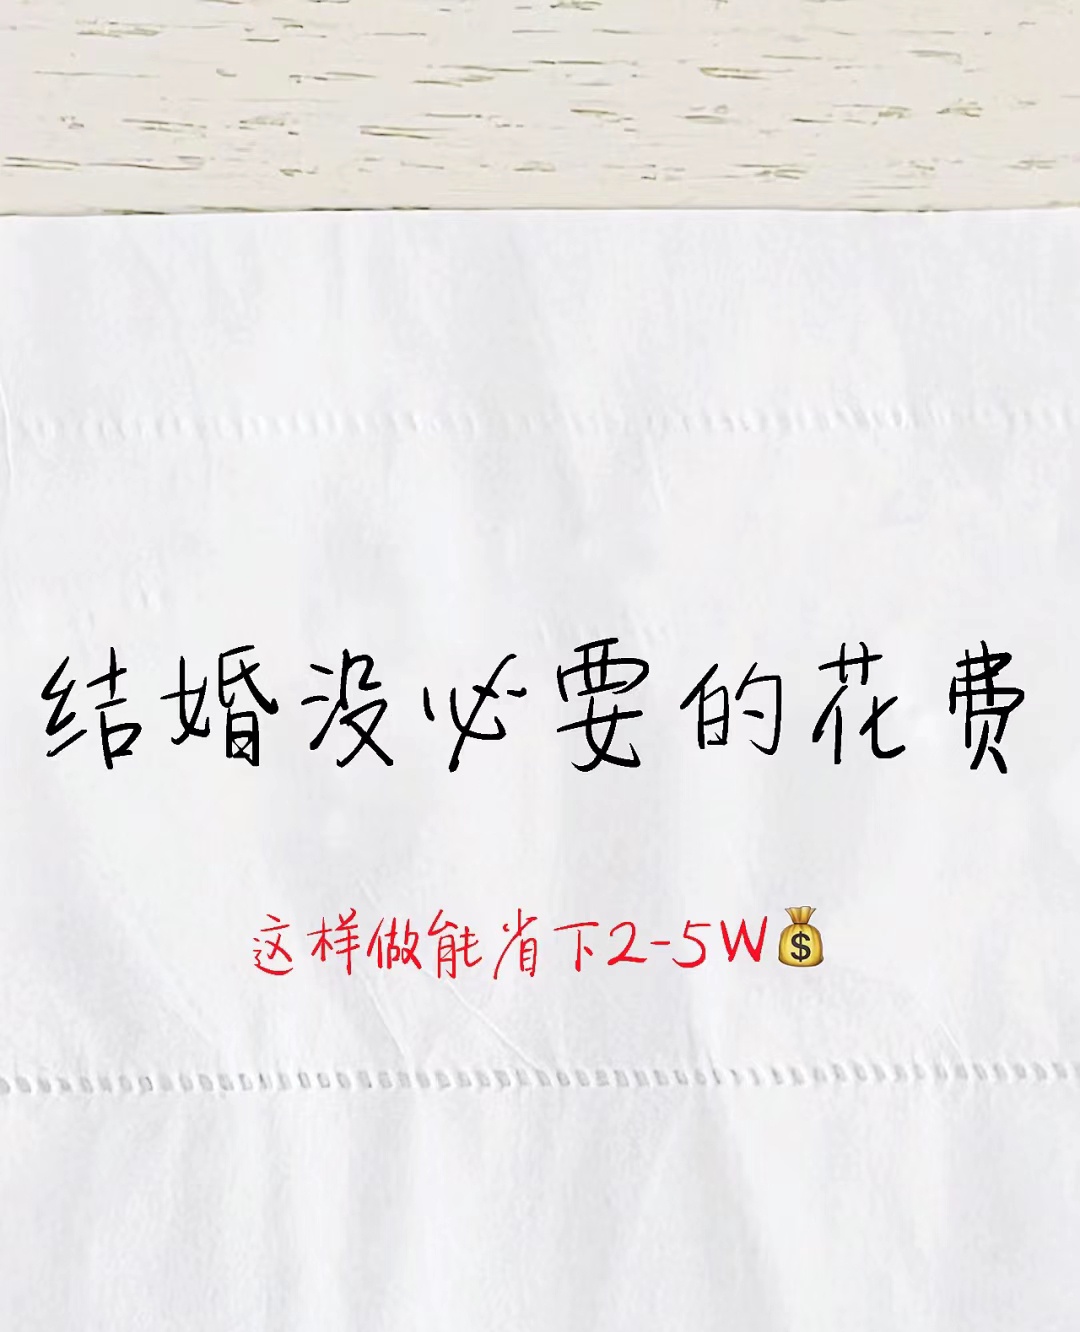 结婚没必要的花费
这样做能省下2-5W💰